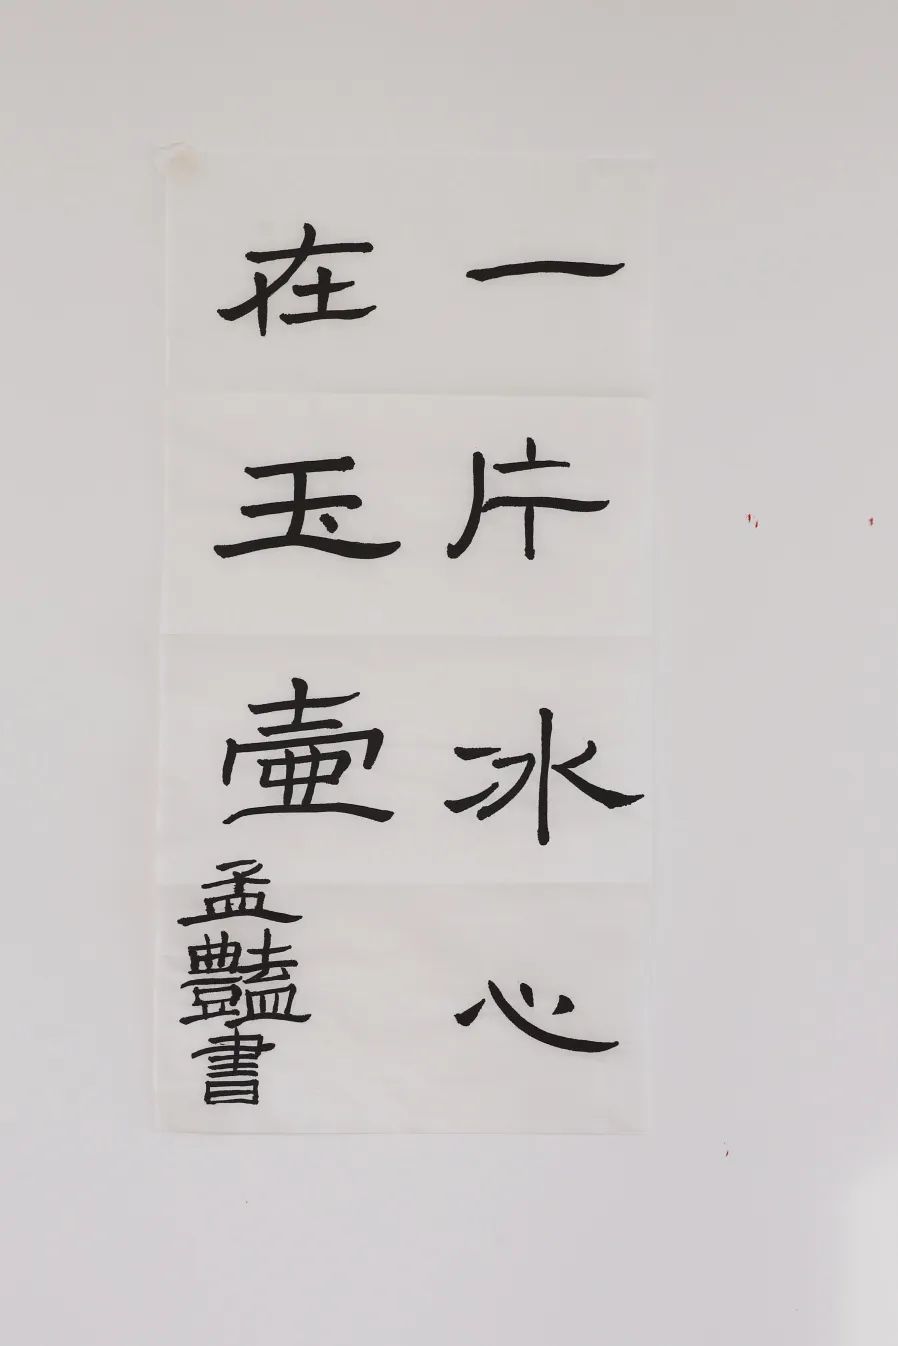 一片冰心
在玉壺
孟豔書